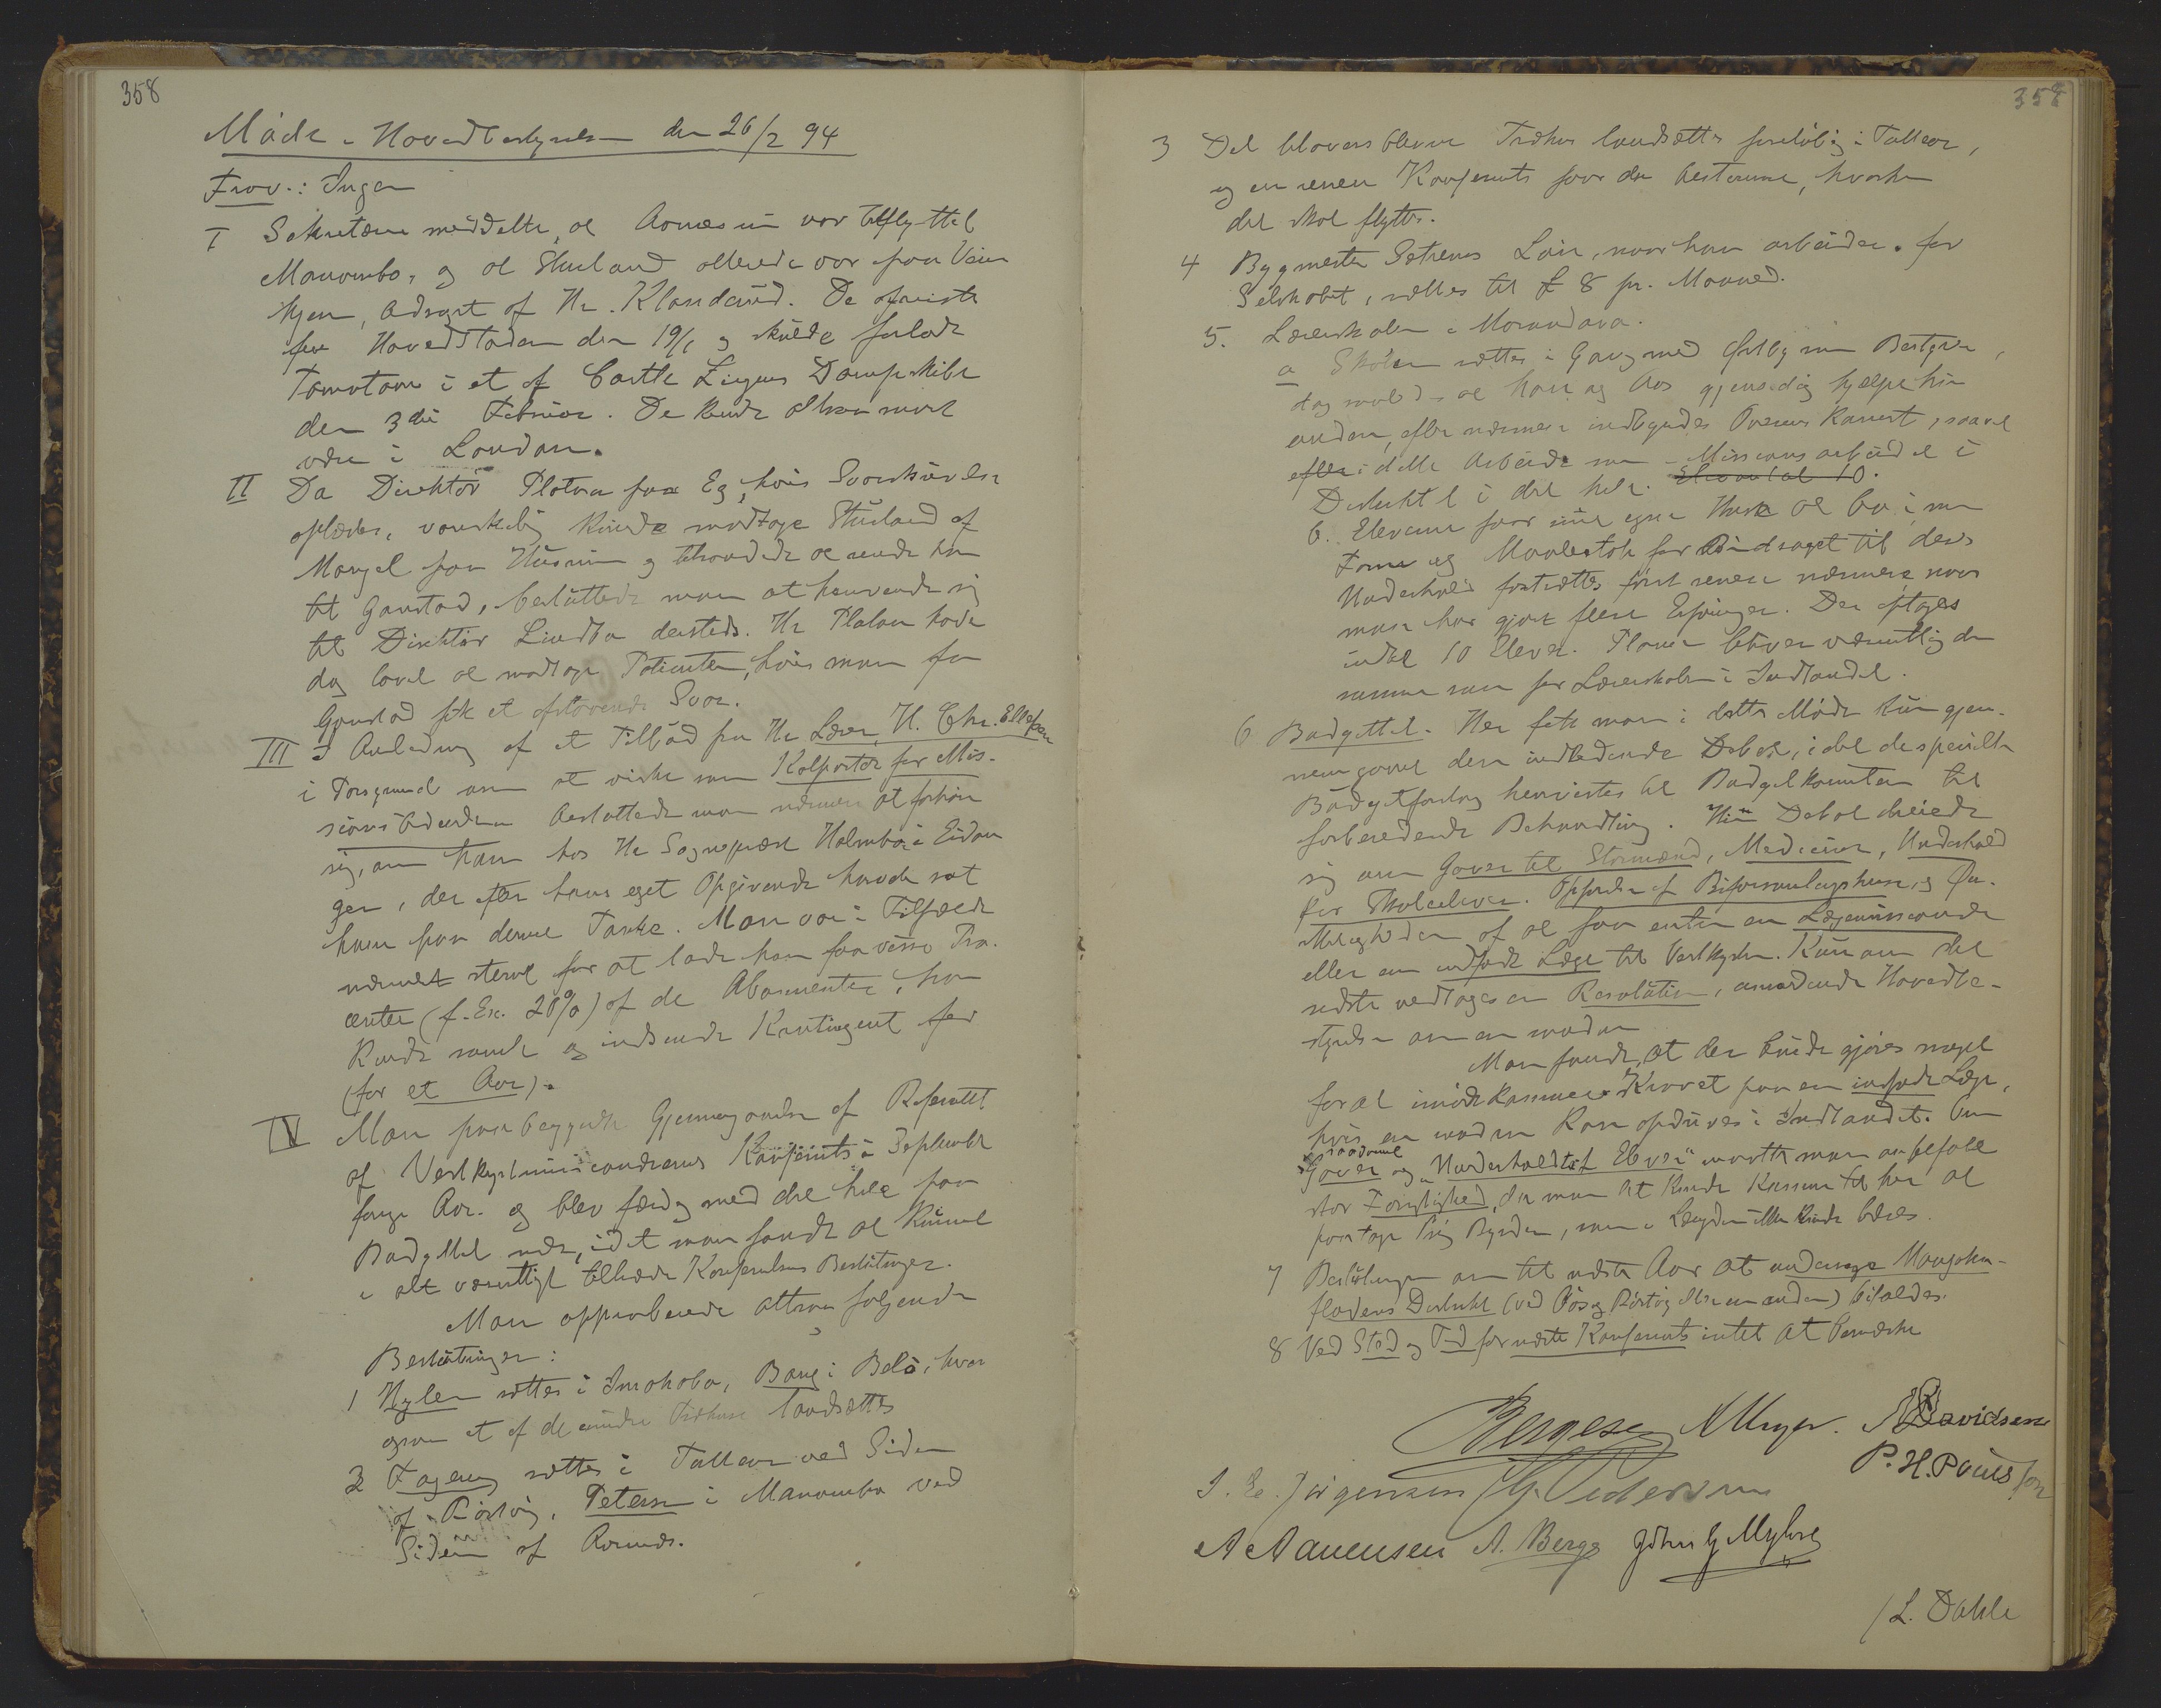 358
Møde i Hovedbestyrelsen den 26/2 94
Frav.: Ingen
I Sekretæren meddelte, at Aarnes nu var tilflyttet
Manombo, og at Stueland allerede var paa Veien
hjem, ledsaget af Hr. Klandrud. De afreiste
fra Hovedstaden den 19/1 og skulde forlade
Tamatave i et af Castle Linjens Dampskibe
den 3die Februar. De kunde altsaa snart
være i London.
II Da Direktør Platou paa Eg, hvis Svarskrivelse
oplæstes, vanskelig kunde modtage Stueland af
Mangel paa Husrum og tilraadede at sende ham
til Gaustad, besluttede man at henvende sig
til Direktør Lindboe dersteds. Hr Platou havde
dog lovet at modtage Patienten, hvis man fra
Gaustad fik et afslaaende Svar.
III I Anledning af et Tilbud fra Hr Lærer H. Chr. Ellefsen
i Porsgrund om at virke som Kolportør for Mis-
sionstidenden besluttede man nærmere at forhøre
sig om ham hos Hr Sogneprest Holmboe i Eidan
ger, der efter hans eget Opgivende havde sat
ham paa denne Tanke. Man var i Tilfælde
nærmest stemt for at lade ham faa visse Pro-
center (f. Ex. 20%) af de Abonnenter, han
kunde samle og indsende Kontingent for
(for et Aar).
IV Man paabegyndte Gjennemgaaelsen af Referatet
af Vestkystmissionærernes Konferents i September
forrige Aar og blev færdig med det hele paa
Budgettet nær, idet man fandt at kunne
i alt væsentligt tiltræde Konferentsens Beslutninger.
Man approberede altsaa følgende
Beslutninger:
1 Nylen sættes i Imohobo, Bang i Belo, hvor
ogsaa et af de mindre Træhuse landsættes
2 Fagereng sættes i Tullear ved Siden
af Røstvig, Petersen i Manombo ved
Siden af Aarnes.
358
3 Det blivensblevne Træhus landsættes foreløbig i Tullear,
og en senere Konferents faar da bestemme, hvorhen
det skal flyttes.
4 Bygmester Sætrenes Løn, naar han arbeider for
Selskabet, sættes til £ 8 pr. Maaned.
5. Lærerskolen i Morondava.
a Skolen sættes i Gang med Østby som Bestyrer,
dog saaledes at han og Aas gjensidig hjælpe hin
anden, efter nærmere indbyrdes Overenskomst, saavel
i dette Arbeide som i Missionsarbeidet i
Distriktet i det hele. Elevantal 10.
b. Eleverne faar sine egne Huse at bo i, men
Form og Maalestok for Bidraget til deres
Underhold fastsættes først senere nærmere naar
man har gjort flere Erfaringer. Der optages
indtil 10 Elever. Planen bliver væsentlig den
samme som for Lærerskolen i Indlandet.
6 Budgettet. Her fik man i dette Møde kun gjen-
nemgaaet den indledende Debat, idet de specielle
Budgetforslag henvistes til Budgetkomiteen til
forberedende Behandling. Hin Debat dreiede
sig om Gaver til Stormænd, Medicin, Underhold
for Skoleelever. Opførelse af Biforsamlingshuse, og Øn-
skeligheden af at faa enten en Lægemissionær
eller en indfødt Læge til Vestkysten. Kun om det
sidste vedtoges en Resolution, anmodende Hovedbe-
styrelsen om en saadan
Man fandt, at der burde gjøres noget
for at imødekomme Kravet paa en indfødt Læge,
hvis en saadan kan opdrives i Indlandet. Om
saadanne
Gaver og "Underholdt af Elever" maatte man anbefale
stor Forsigtighed, da man let kunde komme til her at
paatage sig Byrder, som i Længden ikke kunde bæres.
7 Beslutningen om til næste Aar at undersøge Mangoka-
flodens Distrikt (ved Aas og Røstvig eller en anden) bifaldes.
8 Ved Sted og Tid for næste Konferents intet at bemærke
Borgesen A Meyer. N Davidsen
P. H. Poulsson
I. E. Jørgensen G. Pedersen
A Aanensen A. Berge John G Myhre
/L. Dahle